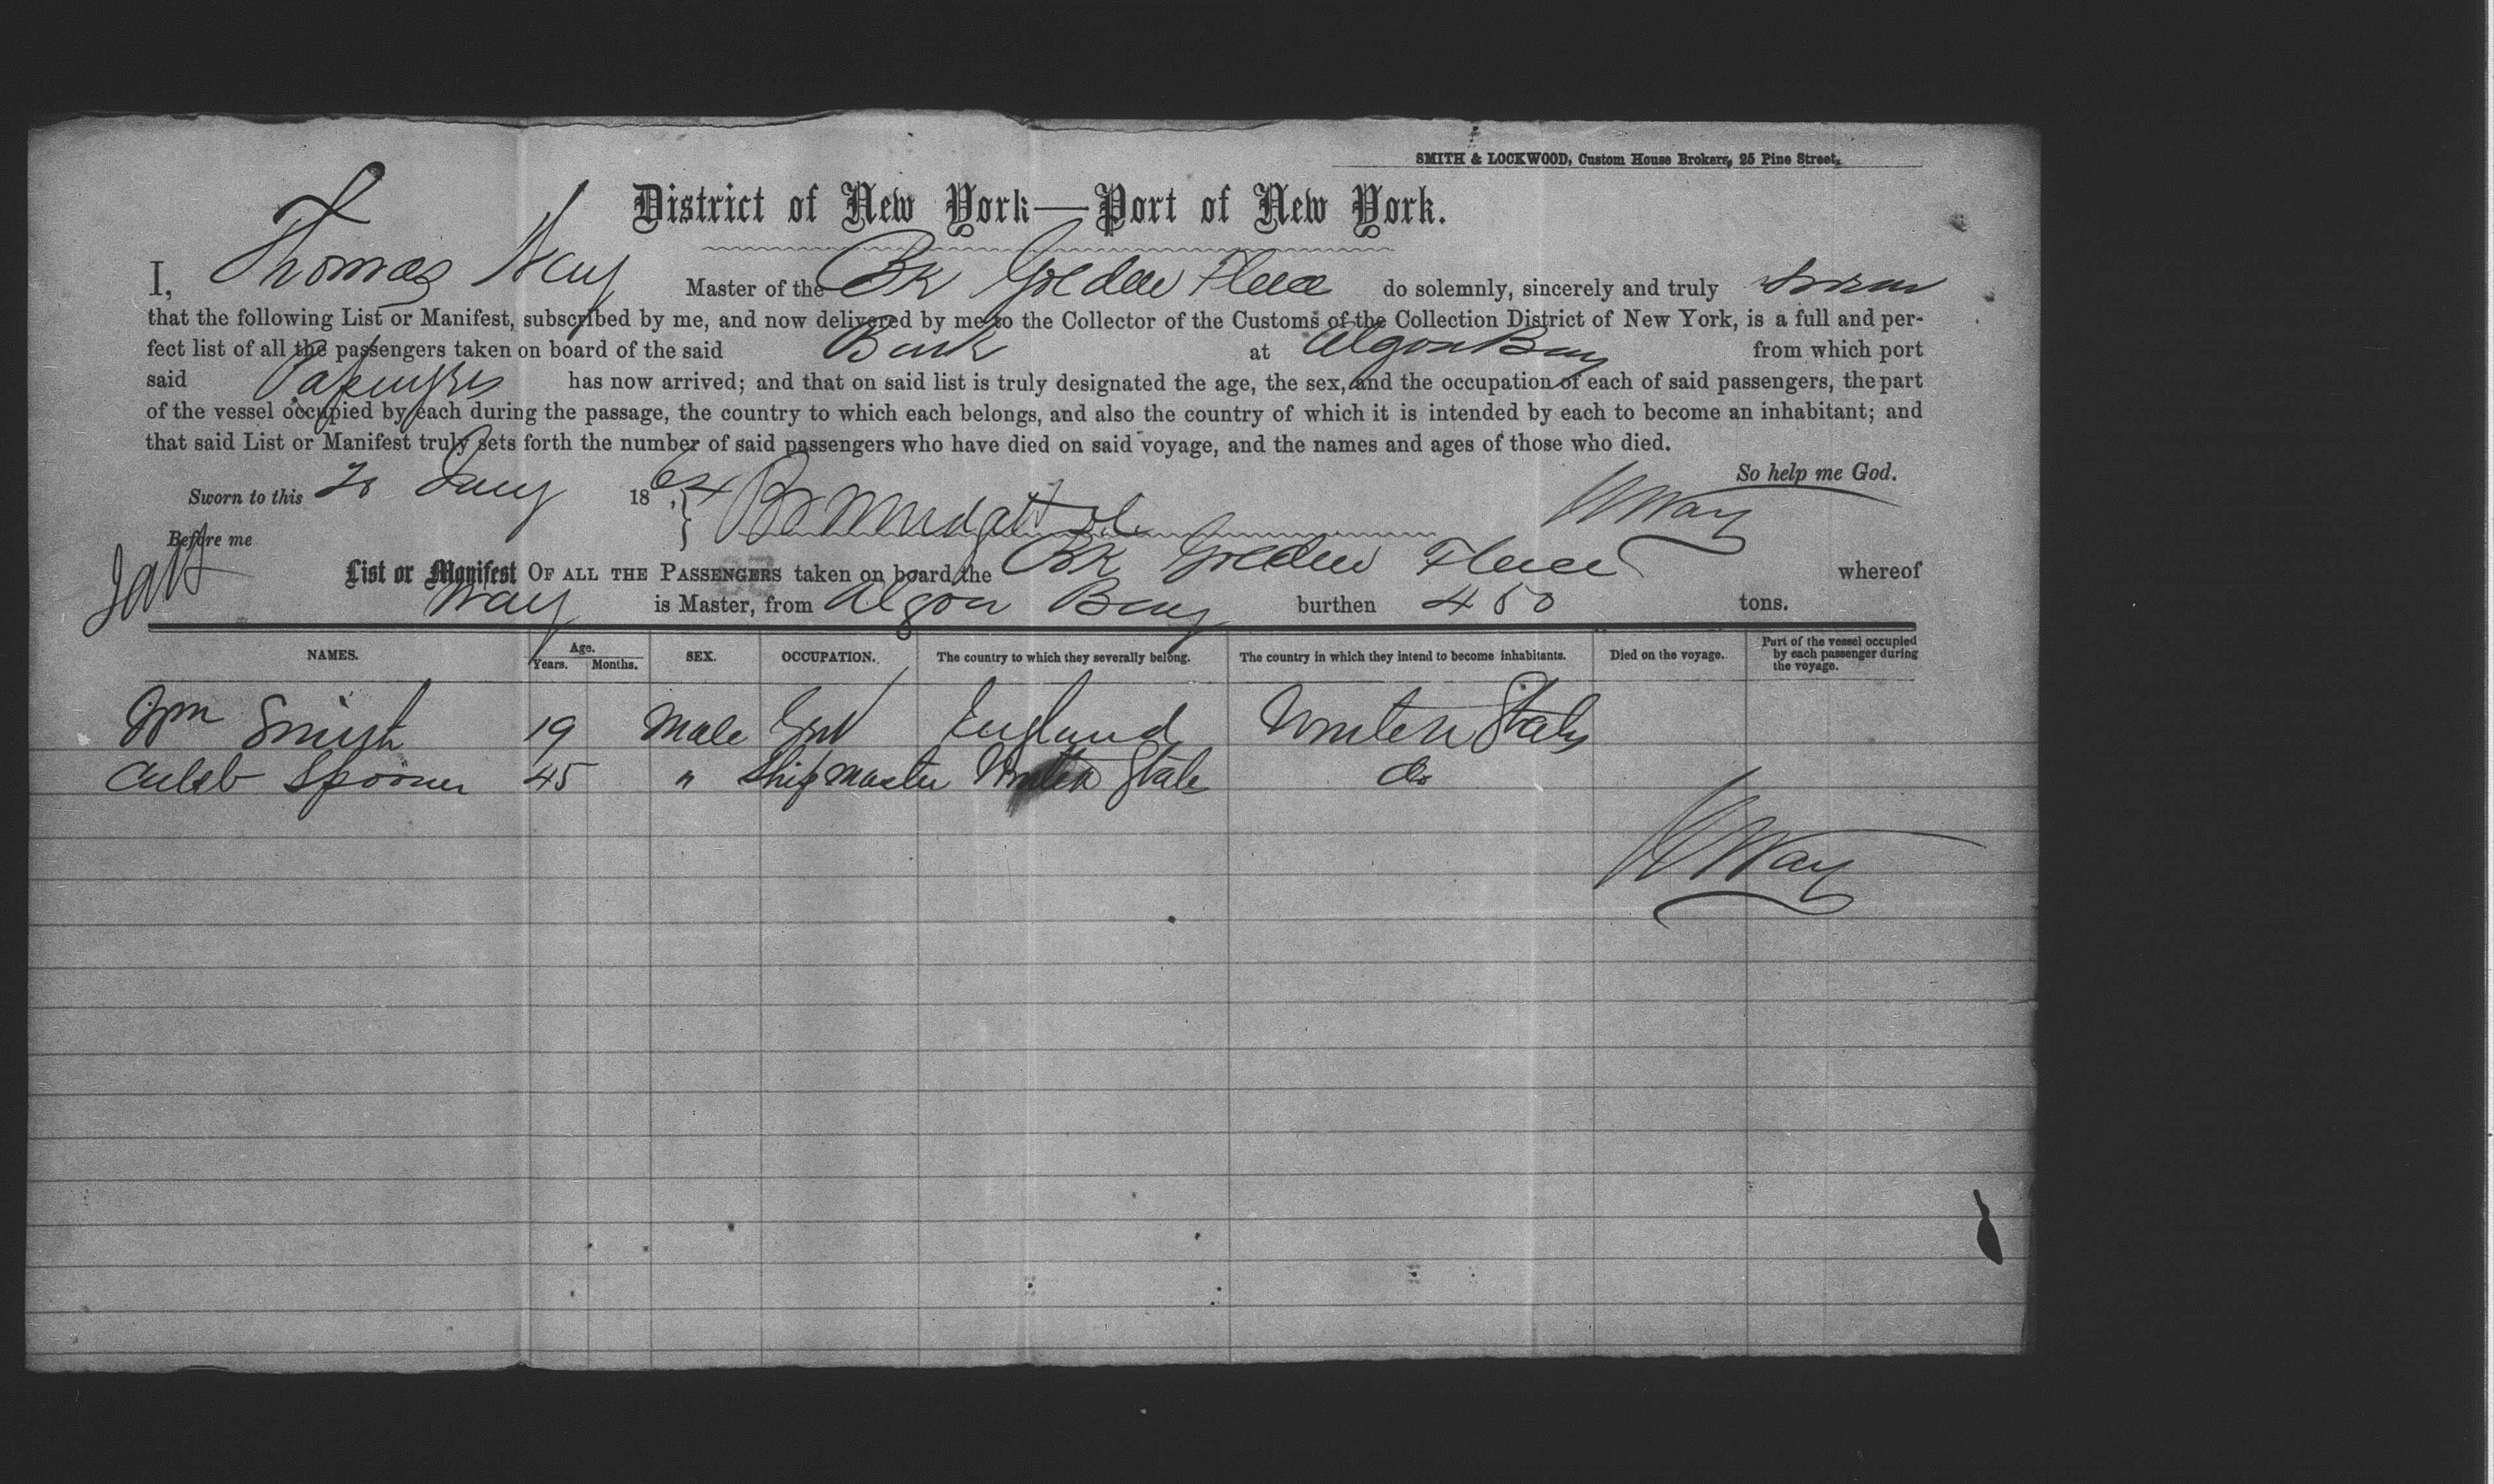 SMITH & LOCKWOOD, Custom House Brokers, 25 Pine Street,
District of New York—Port of New York.
I, Thomas Way Master of the Bk Golden Fleece do solemnly, sincerely and truly swear
that the following List or Manifest, subscribed by me, and now delivered by me to the Collector of the Customs of the Collection District of New York, is a full and per-
fect list of all the passengers taken on board of the said Bark at Algoa Bay from which port
said has now arrived; and that on said list is truly designated the age, the sex, and the occupation of each of said passengers, the part
of the vessel occupied by each during the passage, the country to which each belongs, and also the country of which it is intended by each to become an inhabitant; and
that said List or Manifest truly sets forth the number of said passengers who have died on said voyage, and the names and ages of those who died.
So help me God.
Sworn to this 20 Jany 1864 Way
Before me
List or Manifest OF ALL THE PASSENGERS taken on board the Bk Golden Fleece whereof
Way is Master, from Algoa Bay burthen 450 tons.
NAMES. Age. Years. Months. SEX. OCCUPATION. The country to which they severally belong. The country in which they intend to become inhabitants. Died on the voyage. Part of the vessel occupied by each passenger during the voyage.
Wm Smith 19 Male Gent England United States
Caleb Spooner 45 " Shipmaster United States do
Way